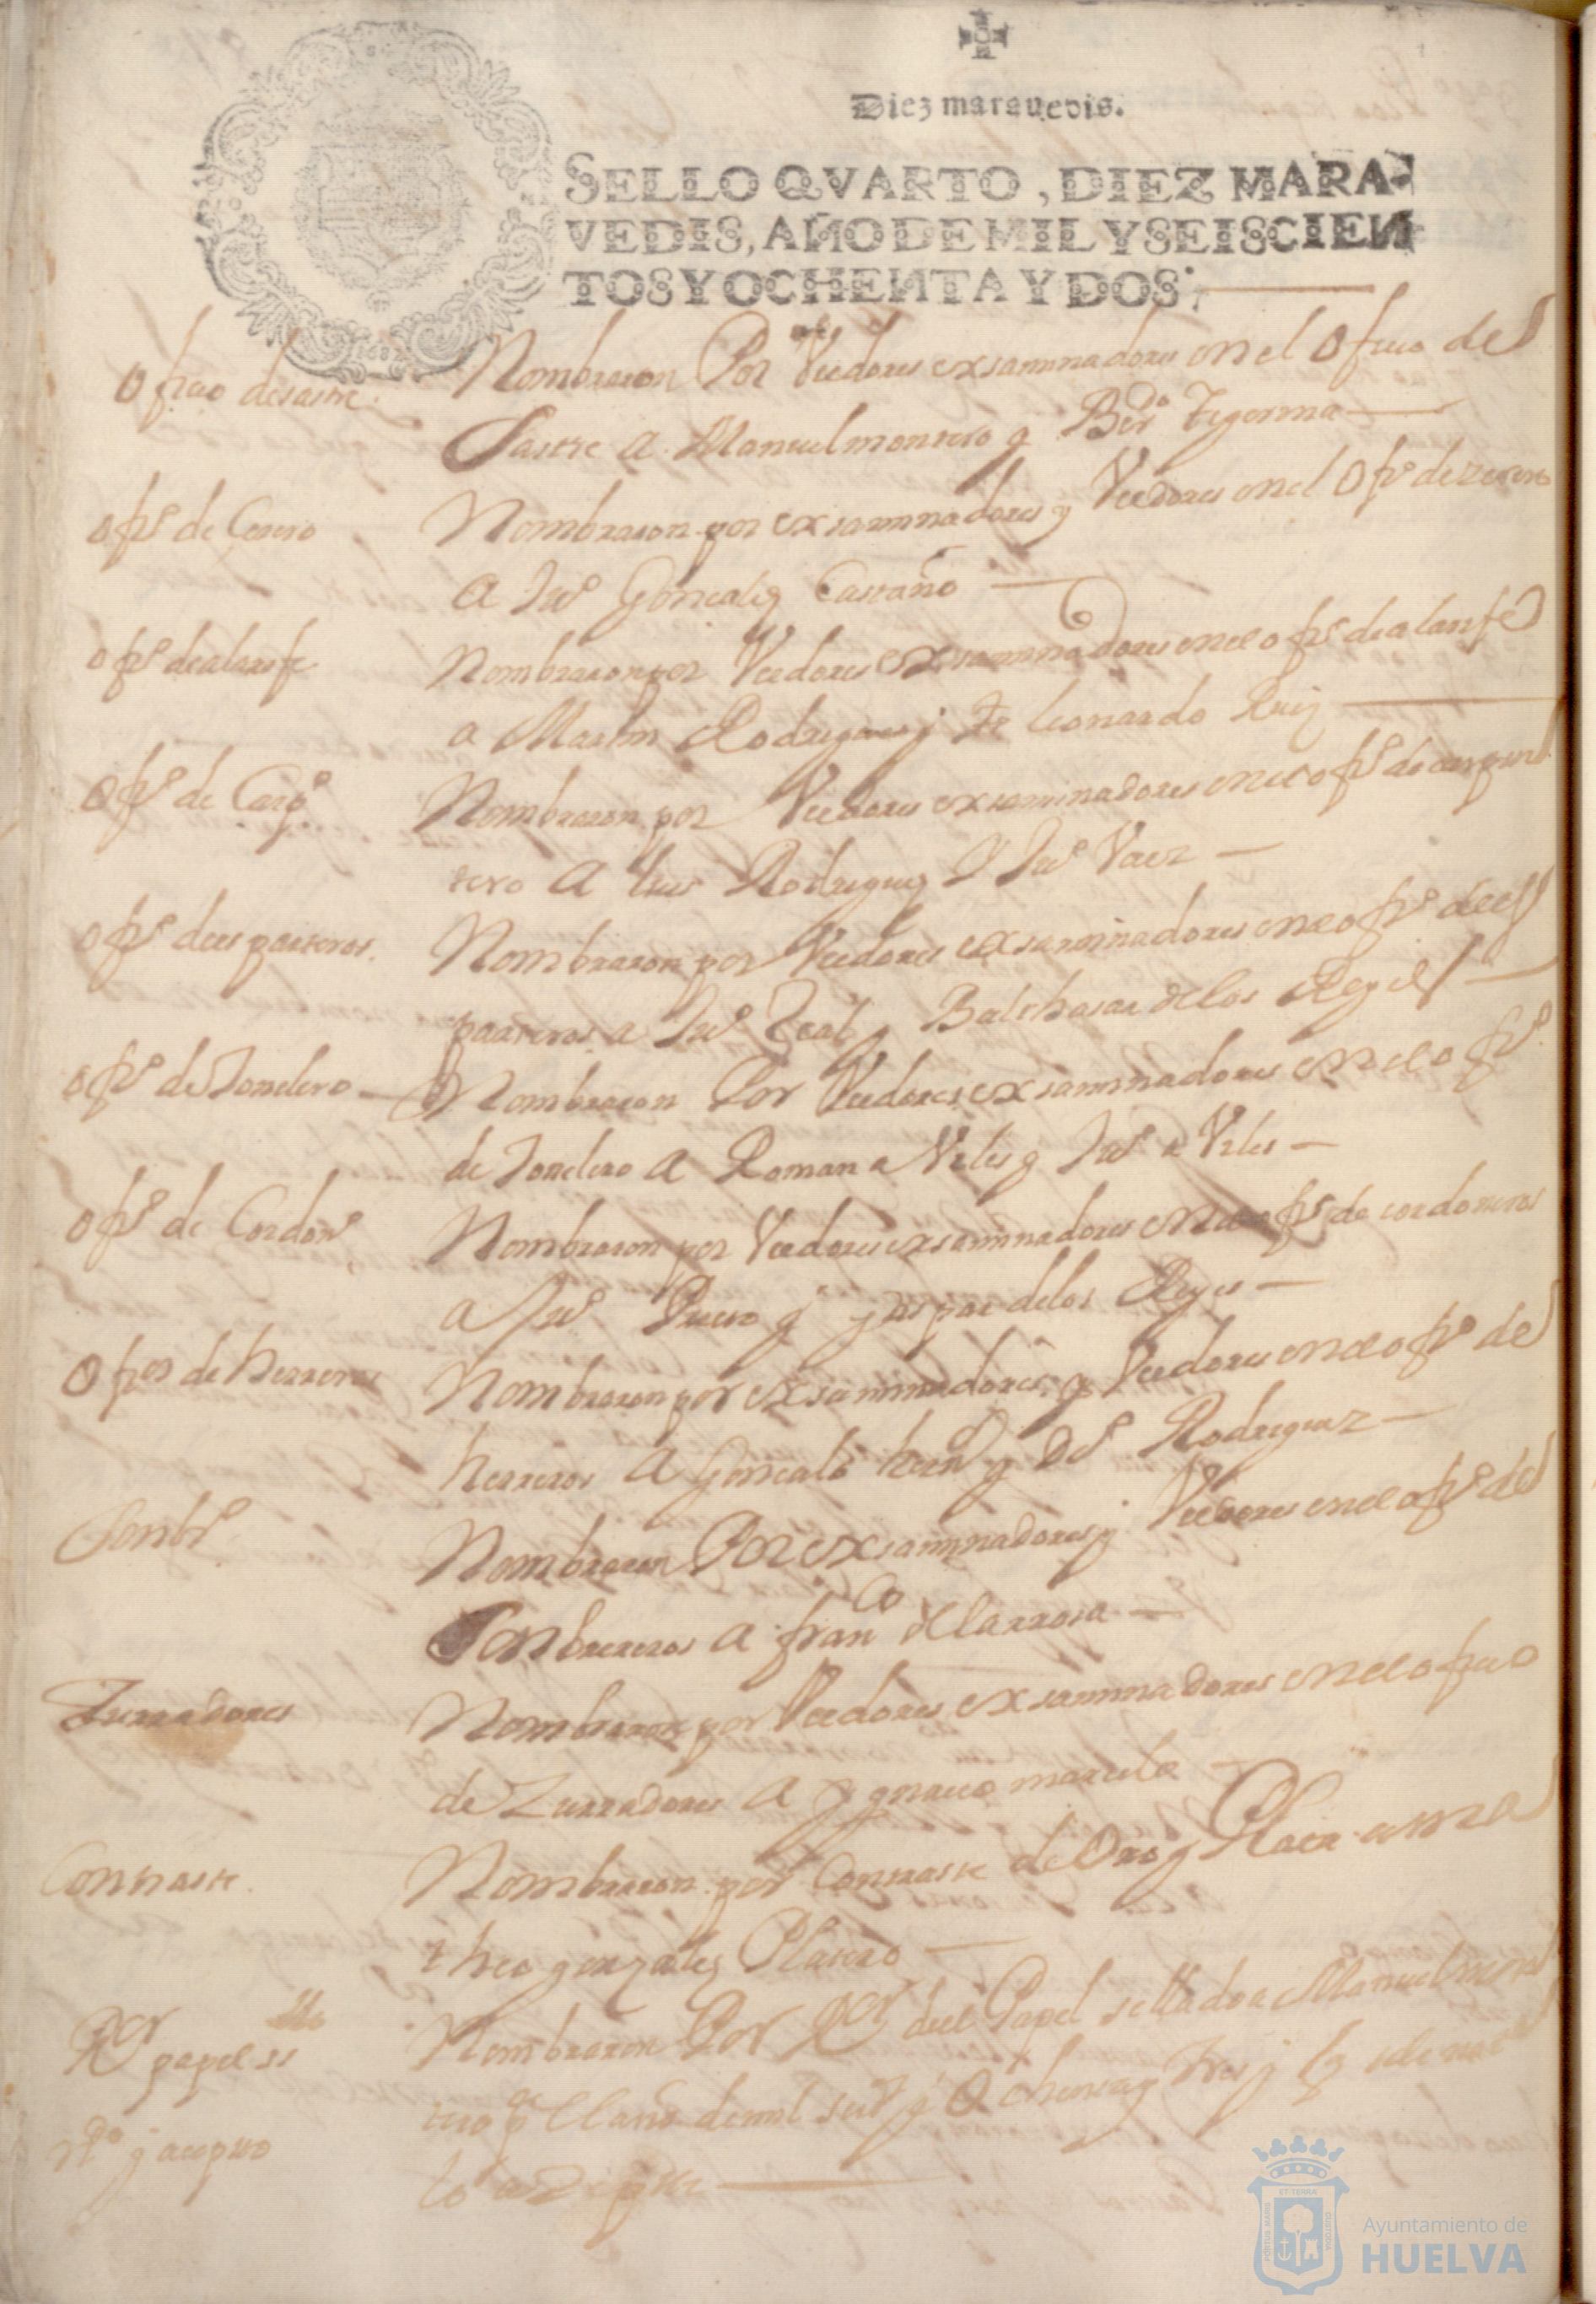 Diez maravedis.
SELLO QVARTO, DIEZ MARA-
VEDIS, AÑO DE MIL Y SEISCIEN
TOS Y OCHENTA Y DOS.
1682
ofiçio de sastre
Nombraron Por Veedores exsaminadores en el Ofiçio de
Sastre a Manuel montero y
ofiº de Cerero
Nombraron por exsaminadores y Veedores en el Ofiº de zerero
A Juº Gonçales Castaño
ofiº de alarife
Nombraron por Veedores exsaminadores en el ofiº de alarife
a Martin Rodrigues y Leonardo Ruiz
Ofiº de Carpº
Nombraron por Veedores exsaminadores en el ofiº de carpin
tero A Luis Rodriguez Y Juº Vaez
ofiº de esparteros
Nombraron por Veedores exsaminadores en el ofiº de es
parteros a Juº Leal y Balthasar de los Reyes
ofiº de Tonelero
Nombraron Por Veedores exsaminadores en el ofiº
de Tonelero A Roman a Viles y Juº a Viles
ofiº de Cordonº
Nombraron por Veedores exsaminadores en el ofiº de cordoneros
a Juº y gaspar de los Reyes
Ofiº de herreros
Nombraron por exsaminadores y Veedores en el ofiº de
herreros A Gonçalo hern y Dº Rodriguez
Sonbrº
Nombraron Por exsaminadores y Veedores en el ofiº de
Sonbrereros a franco de larrosa
Zurradores
Nombraron por Veedores exsaminadores en el ofiçio
de Zurradores A Ygnacio marcelo
Contraste
Nombraron por Contraste de Oro y Plata a ma
theo gonzales Platero
Ror papel ss
Nombraron Por Ror del Papel sellado a Manuel mon
tero pª el año de mil seisº y Ochenta y tres y
y acepto